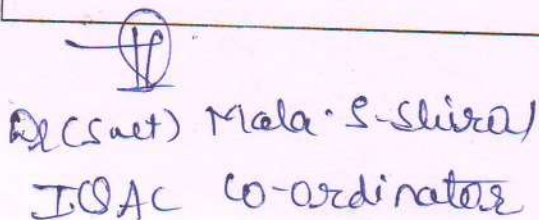 Dr (Smt) Mala. S. Shiral
IQAC Co-ordinator